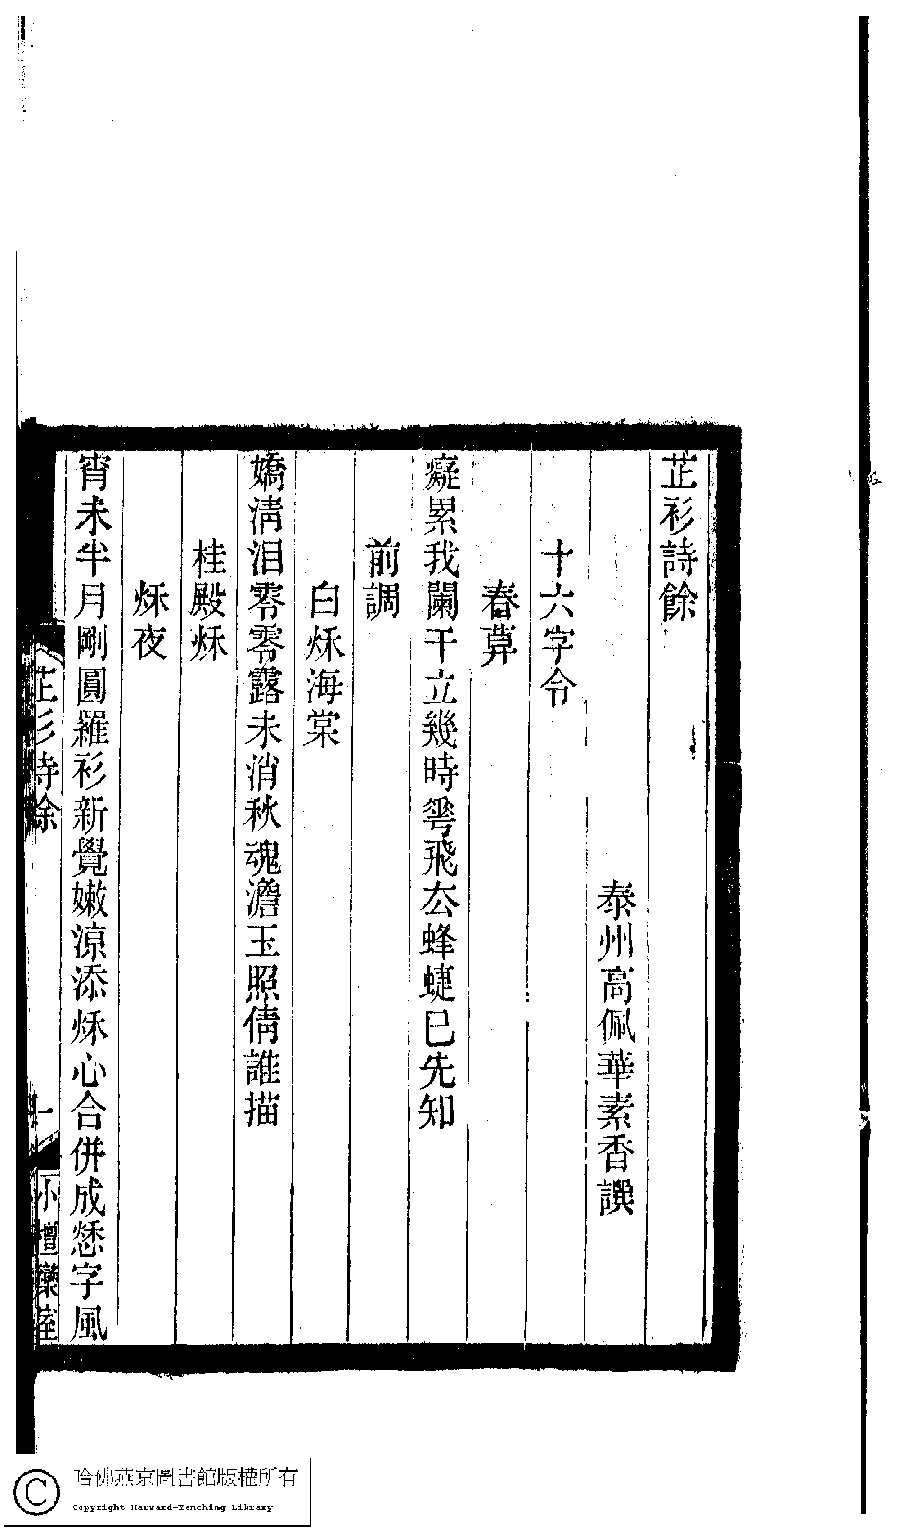 芷衫詩餘
泰州高佩華素香譔
十六字令
春草
癡累我闌干立幾時䔢飛厺蜂蜨已先知
前調
白秌海棠
嬌淸泪零零露未消秋魂澹玉照倩誰描
桂殿秌
秌夜
宵未半月剛圓羅衫新覺嫩涼添秌心合併成愁字風
芷衫詩餘
一
小檀欒室
哈佛燕京圖書館版權所有
Copyright Harvard-Yenching Library